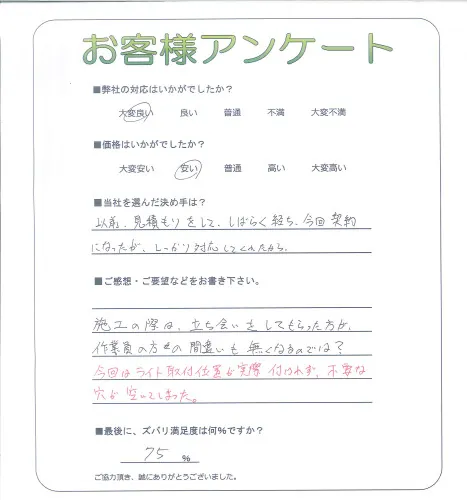 お客様アンケート
■弊社の対応はいかがでしたか?
大変良い 良い 普通 不満 大変不満
■価格はいかがでしたか?
大変安い 安い 普通 高い 大変高い
■当社を選んだ決め手は?
以前、見積もりをして、しばらく経ち、今回契約
になったが、しっかり対応してくれたから。
■ご感想・ご要望などをお書き下さい。
施工の際は、立ち会いをしてもらった方が、
作業員の方々の間違いも無くなるのでは?
今回はライト取付位置が実際付けれず、不要な
穴が空いてしまった。
■最後に、ズバリ満足度は何%ですか?
75 %
ご協力頂き、誠にありがとうございました。